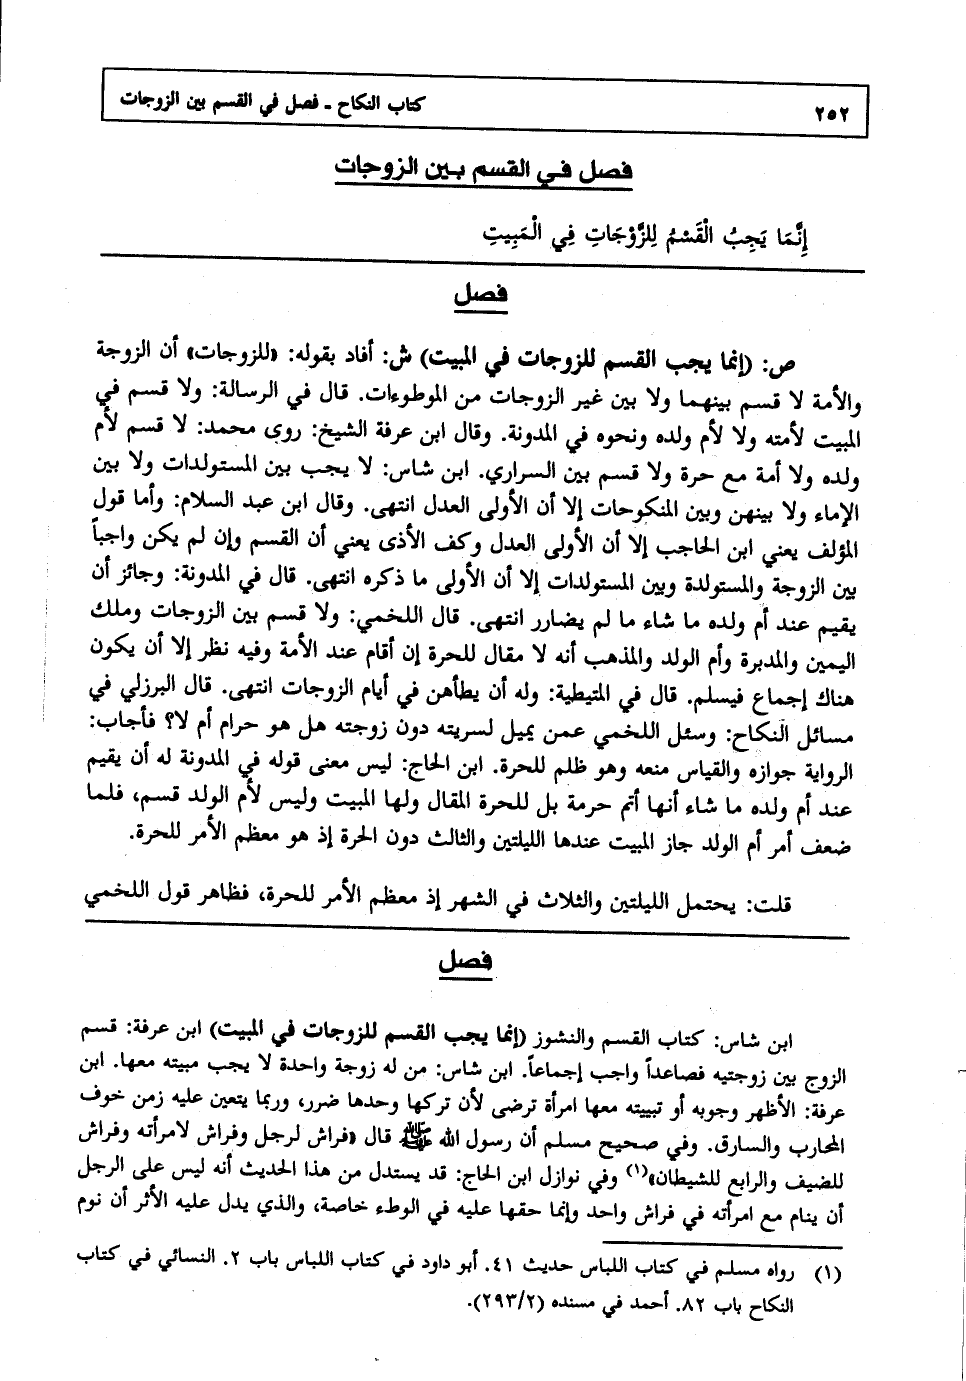 ٢٥٢ كتاب النكاح ـ فصل في القسم بين الزوجات
فصل في القسم بين الزوجات
إِنَّمَا يَجِبُ الْقَسْمُ لِلزَّوْجَاتِ فِي الْمَبِيتِ
فصل
ص: (إنما يجب القسم للزوجات في المبيت) ش: أفاد بقوله: «للزوجات» أن الزوجة
والأمة لا قسم بينهما ولا بين غير الزوجات من الموطوءات. قال في الرسالة: ولا قسم في
المبيت لأمته ولا لأم ولده ونحوه في المدونة. وقال ابن عرفة الشيخ: روى محمد: لا قسم لأم
ولده ولا أمة مع حرة ولا قسم بين السراري. ابن شاس: لا يجب بين المستولدات ولا بين
الإماء ولا بينهن وبين المنكوحات إلا أن الأولى العدل انتهى. وقال ابن عبد السلام: وأما قول
المؤلف يعني ابن الحاجب إلا أن الأولى العدل وكف الأذى يعني أن القسم وإن لم يكن واجباً
بين الزوجة والمستولدة وبين المستولدات إلا أن الأولى ما ذكره انتهى. قال في المدونة: وجائز أن
يقيم عند أم ولده ما شاء ما لم يضارر انتهى. قال اللخمي: ولا قسم بين الزوجات وملك
اليمين والمدبرة وأم الولد والمذهب أنه لا مقال للحرة إن أقام عند الأمة وفيه نظر إلا أن يكون
هناك إجماع فيسلم. قال في المتيطية: وله أن يطأهن في أيام الزوجات انتهى. قال البرزلي في
مسائل النكاح: وسئل اللخمي عمن يميل لسريته دون زوجته هل هو حرام أم لا؟ فأجاب:
الرواية جوازه والقياس منعه وهو ظلم للحرة. ابن الحاج: ليس معنى قوله في المدونة له أن يقيم
عند أم ولده ما شاء أنها أتم حرمة بل للحرة المقال ولها المبيت وليس لأم الولد قسم، فلما
ضعف أمر أم الولد جاز المبيت عندها الليلتين والثالث دون الحرة إذ هو معظم الأمر للحرة.
قلت: يحتمل الليلتين والثلاث في الشهر إذ معظم الأمر للحرة، فظاهر قول اللخمي
فصل
ابن شاس: كتاب القسم والنشوز (إنما يجب القسم للزوجات في المبيت) ابن عرفة: قسم
الزوج بين زوجتيه فصاعداً واجب إجماعاً. ابن شاس: من له زوجة واحدة لا يجب مبيته معها. ابن
عرفة: الأظهر وجوبه أو تبييته معها امرأة ترضى لأن تركها وحدها ضرر، وربما يتعين عليه زمن خوف
المحارب والسارق. وفي صحيح مسلم أن رسول الله ﷺ قال «فراش لرجل وفراش لامرأته وفراش
للضيف والرابع للشيطان»(١) وفي نوازل ابن الحاج: قد يستدل من هذا الحديث أنه ليس على الرجل
أن ينام مع امرأته في فراش واحد وإنما حقها عليه في الوطء خاصة، والذي يدل عليه الأثر أن نوم
(١) رواه مسلم في كتاب اللباس حديث ٤١. أبو داود في كتاب اللباس باب ٢. النسائي في كتاب
النكاح باب ٨٢. أحمد في مسنده (٢٩٣/٢).